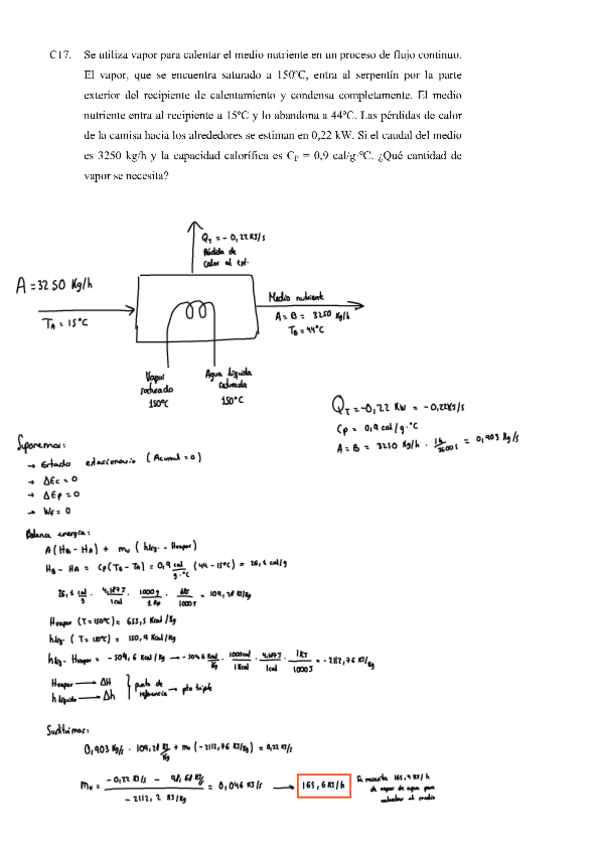 C17. Se utiliza vapor para calentar el medio nutriente en un proceso de flujo continuo.
El vapor, que se encuentra saturado a 150ºC, entra al serpentín por la parte
exterior del recipiente de calentamiento y condensa completamente. El medio
nutriente entra al recipiente a 15ºC y lo abandona a 44ºC. Las pérdidas de calor
de la camisa hacia los alrededores se estiman en 0,22 kW. Si el caudal del medio
es 3250 kg/h y la capacidad calorífica es CP = 0,9 cal/g·ºC. ¿Qué cantidad de
vapor se necesita?
QT = - 0,22 KJ/s
Pérdida de
calor al ext.
A = 3250 Kg/h
TA = 15ºC
Medio nutriente
A = B = 3250 Kg/h
TB = 44ºC
Vapor
saturado
150ºC
Agua líquida
saturada
150ºC
QT = -0,22 KW = -0,22KJ/s
Cp = 0,9 cal/g·ºC
A = B = 3250 Kg/h · 1h/3600s = 0,903 Kg/s
Suponemos:
→ Estado estacionario (Acumul = 0)
→ ΔEc = 0
→ ΔEp = 0
→ Wf = 0
Balance energía:
A(HB - HA) + mv (hliq. - Hvapor)
HB - HA = Cp(TB - TA) = 0,9 cal/g·ºC (44 - 15ºC) = 26,1 cal/g
26,1 cal/g · 4,187J/1cal · 1000g/1Kg · 1KJ/1000J = 109,28 KJ/Kg
Hvapor (T=150ºC) = 655,5 Kcal/Kg
hliq. (T=150ºC) = 150,9 Kcal/Kg
hliq. - Hvapor = -504,6 Kcal/Kg → -504,6 Kcal/Kg · 1000cal/1Kcal · 4,187J/1cal · 1KJ/1000J = -2112,76 KJ/Kg
Hvapor → ΔH
hliquido → Δh
punto de referencia → pto triple
Sustituimos:
0,903 Kg/s · 109,28 KJ/Kg + mv (-2112,76 KJ/Kg) = 0,22 KJ/s
mv = = 0,046 KJ/s → 165,6 KJ/h
-2112,2 KJ/Kg
Se necesita 165,6 KJ/h
de vapor de agua para
calentar el medio